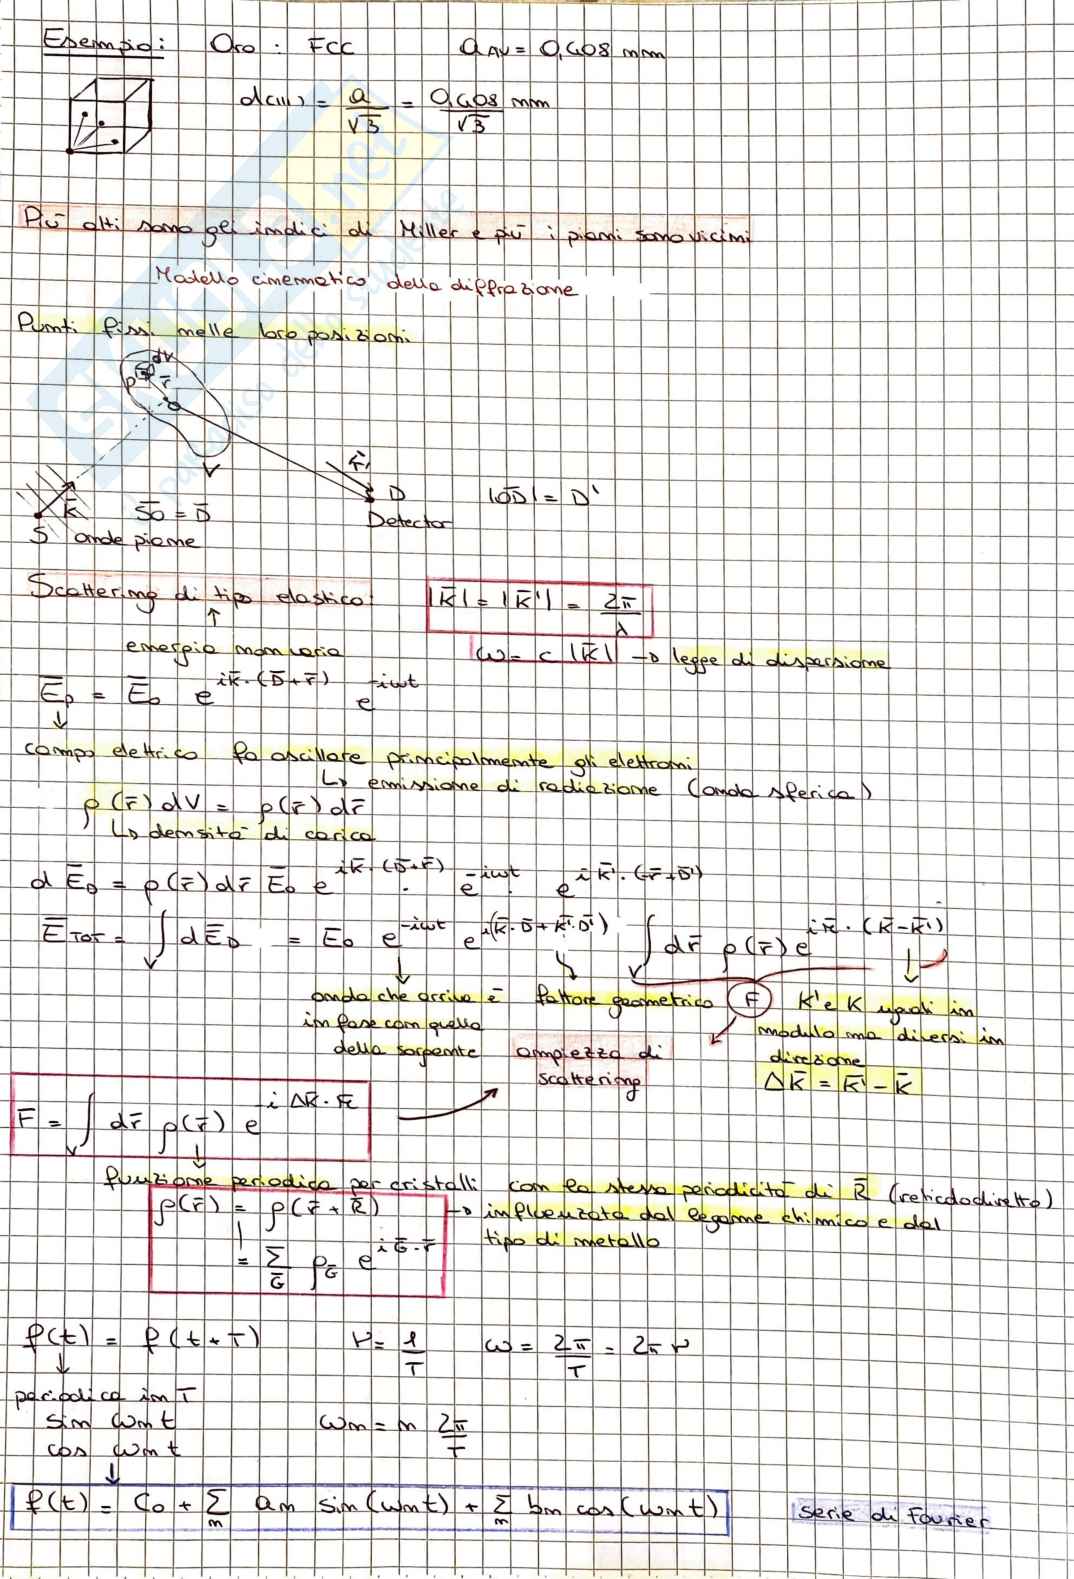 Esempio: Oro : FCC a AV = 0,408 nm
d(111) = a/√3 = 0,408/√3 nm
Più alti sono gli indici di Miller e più i piani sono vicini
Modello cinematico della diffrazione
Punti fissi nelle loro posizioni
dV
ρ r̄
O
V
K̄'
D
Detector
|OD̄| = D'
K̄
S
SŌ = D̄
onde piane
Scattering di tipo elastico: |K̄| = |K̄'| = 2π/λ
energia non varia
ω = c |K̄| → legge di dispersione
Ēp = Ē₀ e^{iK̄·(D̄+r̄)} e^{-iωt}
campo elettrico fa oscillare principalmente gli elettroni
↳ emissione di radiazione (onda sferica)
ρ(r̄)dV = ρ(r̄)dr̄
↳ densità di carica
dĒ_D = ρ(r̄)dr̄ Ē₀ e^{iK̄·(D̄+r̄)} · e^{-iωt} · e^{iK̄'·(-r̄+D̄')}
Ē_TOT = ∫_V dĒ_D = Ē₀ e^{-iωt} e^{i(K̄·D̄+K̄'·D̄')} ∫_V dr̄ ρ(r̄) e^{ir̄·(K̄-K̄')}
onda che arriva è
in fase con quella
della sorgente
fattore geometrico
F
ampiezza di
scattering
K' e K uguali in
modulo ma diversi in
direzione
ΔK̄ = K̄' - K̄
F = ∫_V dr̄ ρ(r̄) e^{-iΔK̄·r̄}
funzione periodica per cristalli con la stessa periodicità di R̄ (reticolo diretto)
ρ(r̄) = ρ(r̄+R̄) → influenzata dal legame chimico e dal
tipo di metallo
= Σ_Ḡ ρ_Ḡ e^{iḠ·r̄}
f(t) = f(t+T) ν = 1/T ω = 2π/T = 2πν
periodica in T
sin ωn t ωn = n 2π/T
cos ωn t
f(t) = C₀ + Σ_n an sin(ωn t) + Σ_n bn cos(ωn t) serie di Fourier